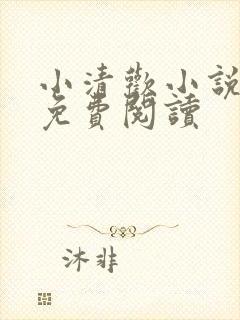 小清歡小說
免費閱讀
沐非